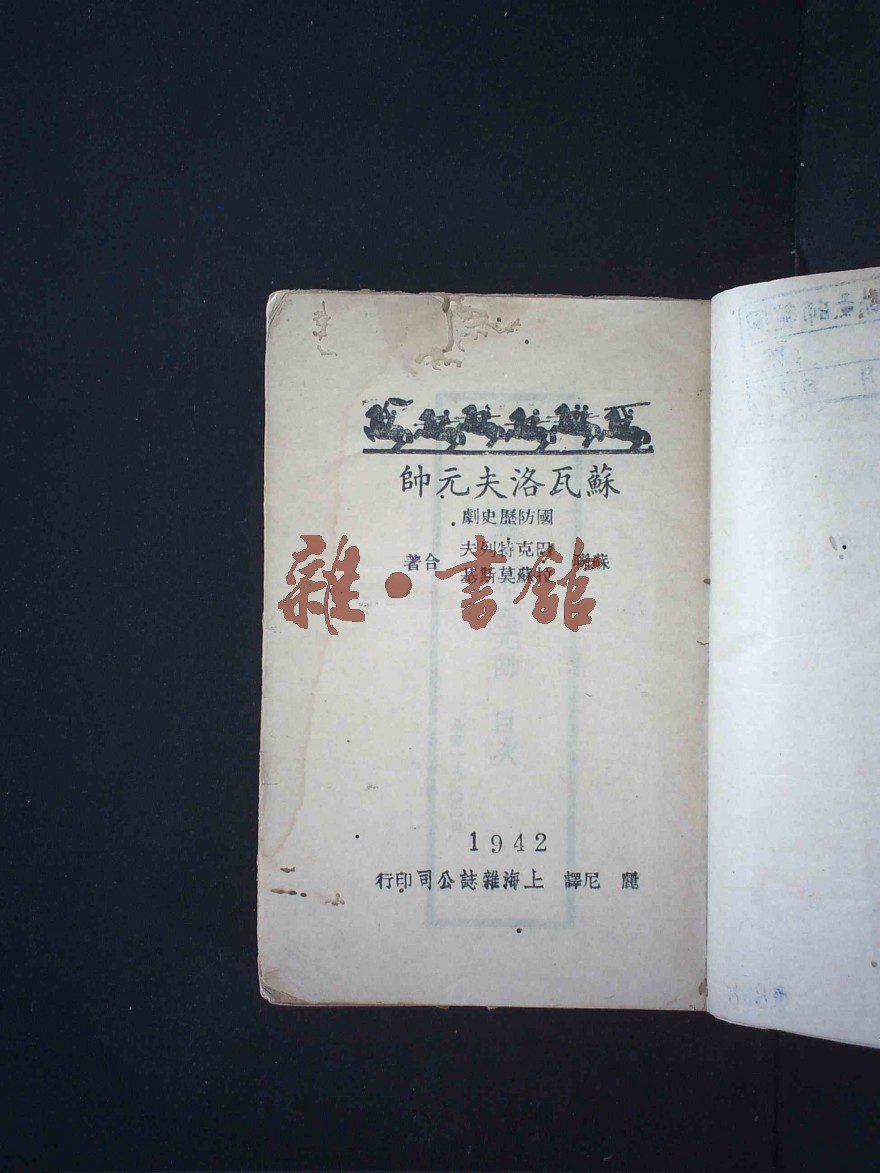 蘇瓦洛夫元帥
國防歷史劇
蘇聯 巴克特列夫 拉蘇莫斯基 合著
雜·書館
1942
麗尼譯 上海雜誌公司印行
目次